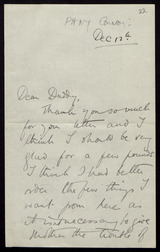 22
Dec 12th
Dear Daddy,
Thank you so much
for your letter and I
think I should be very
glad for a few pounds
I think I had better
order the few things I
want from here as
it is unnecessary to give
Mother the trouble of